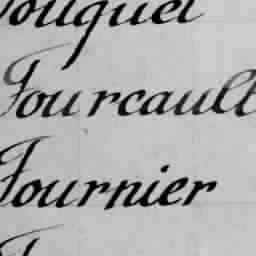 Fouquet
Fourcault
Fournier